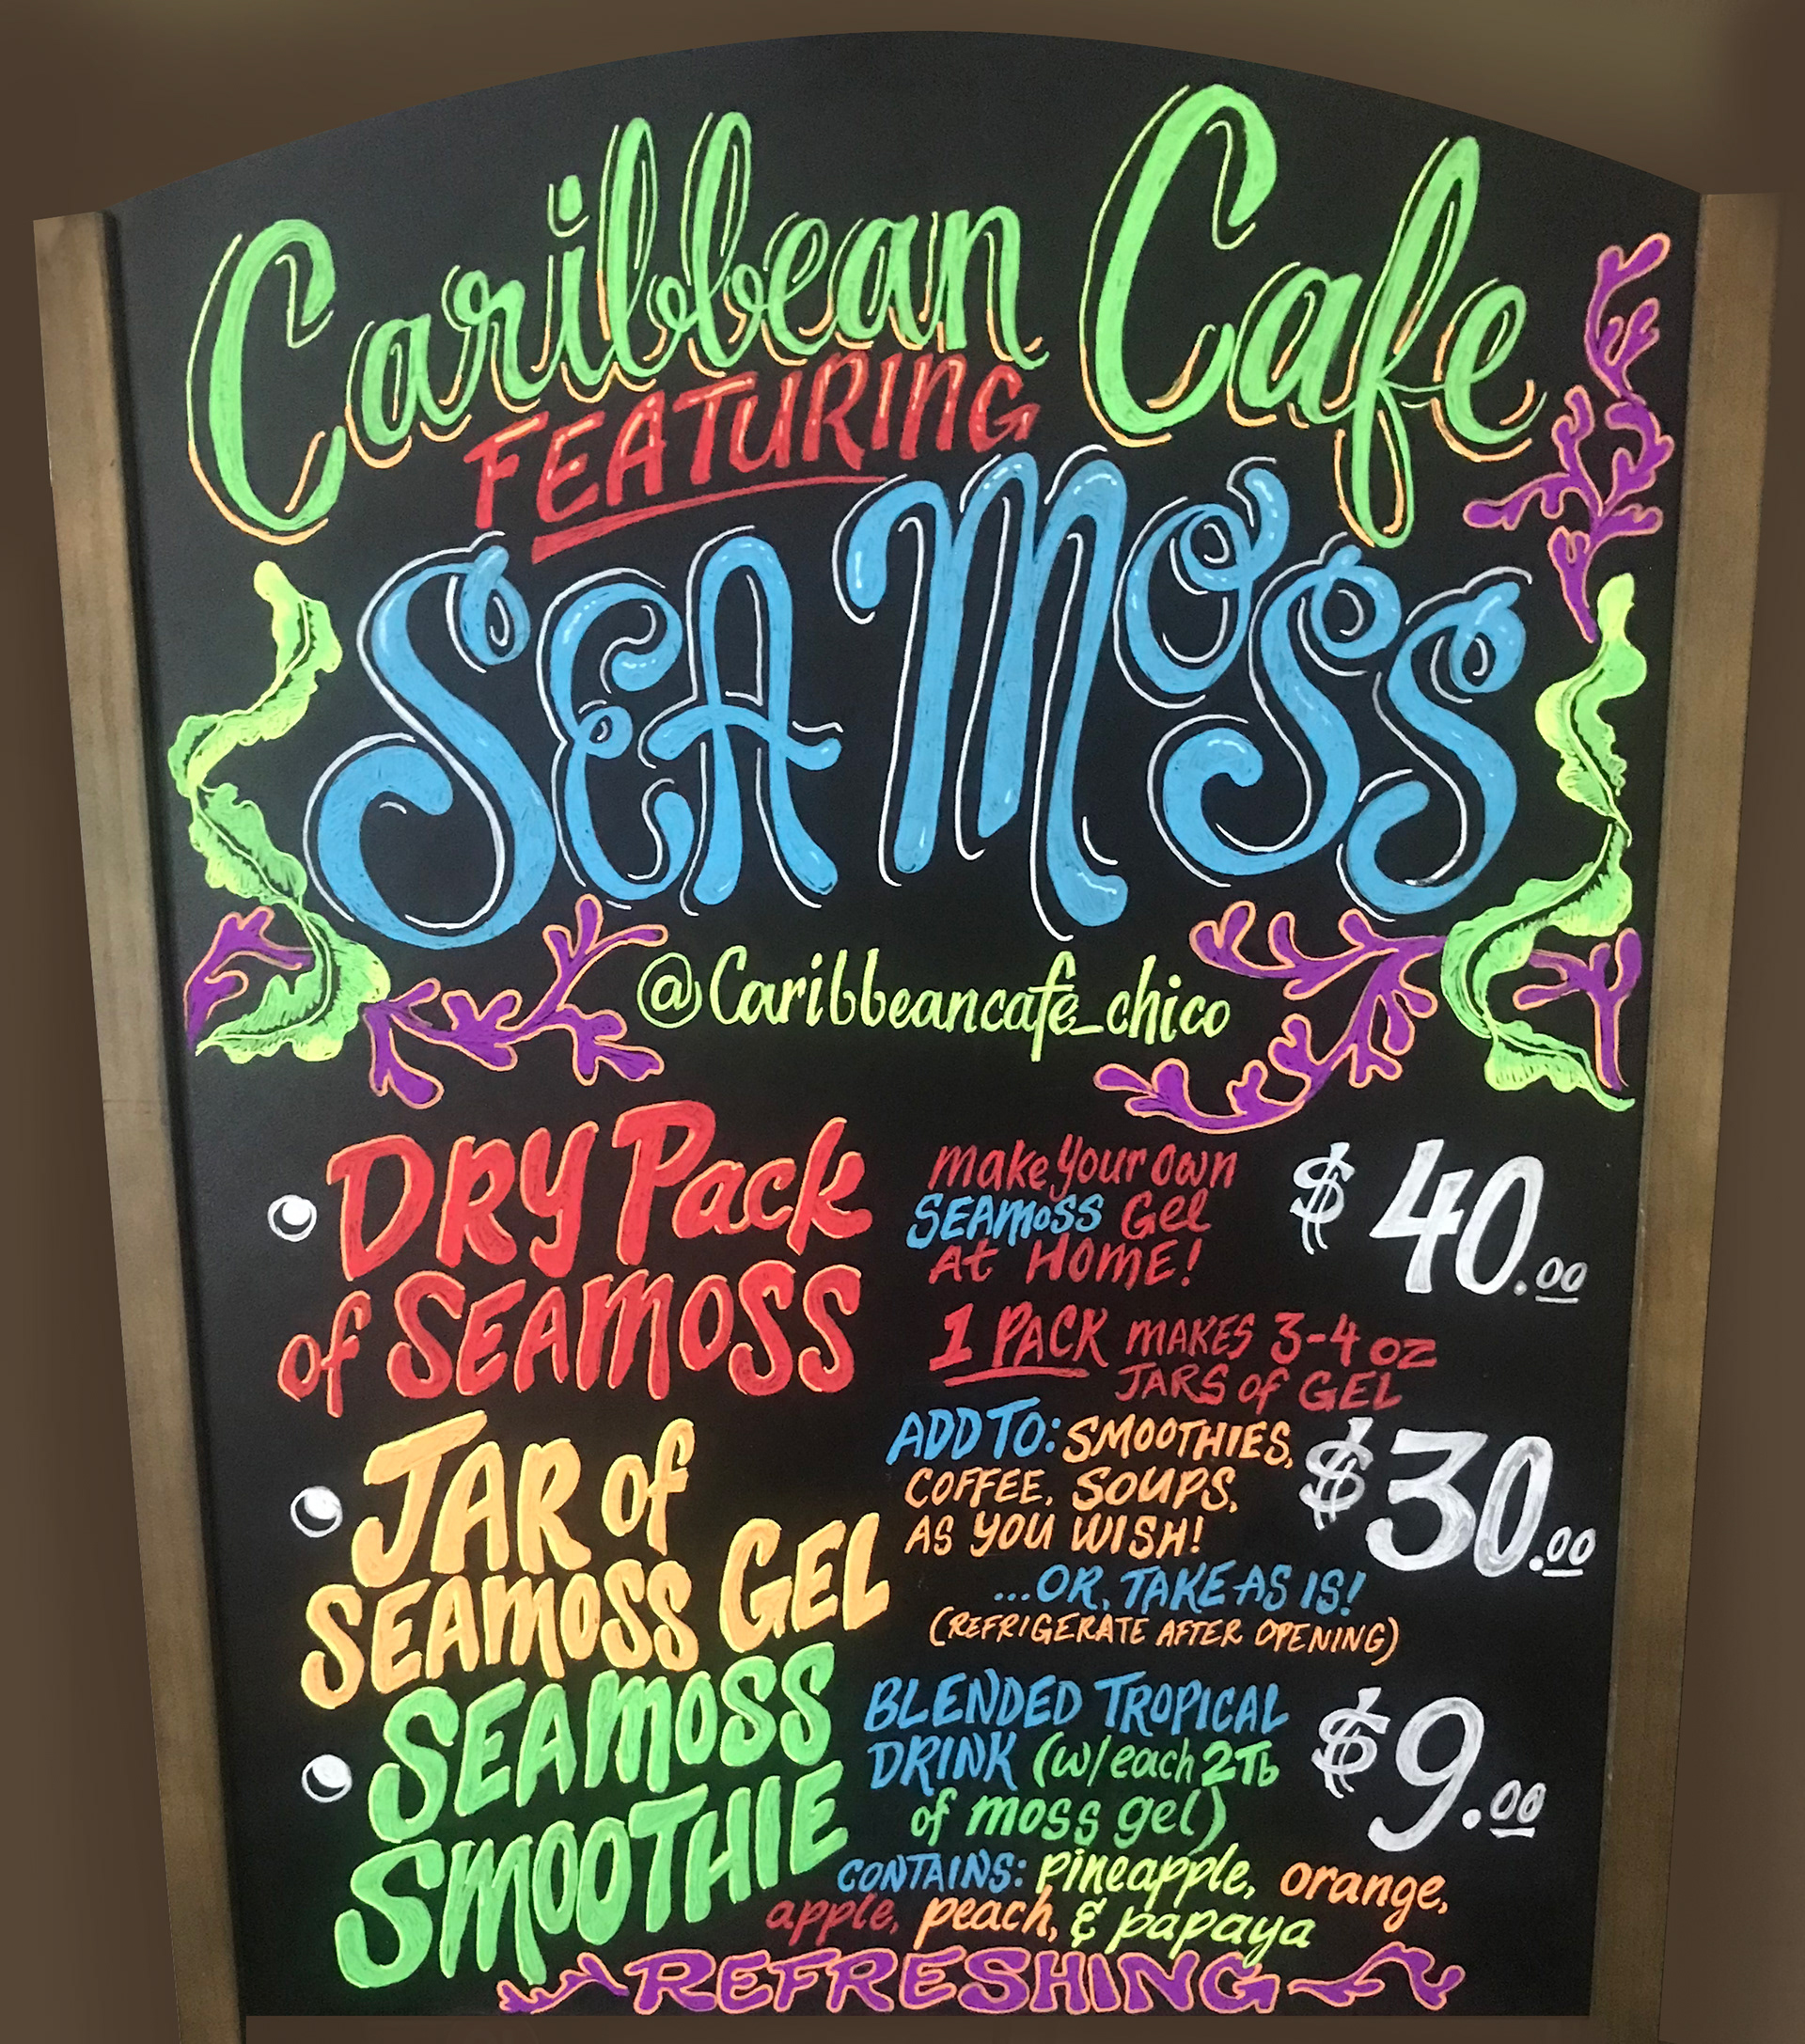 Caribbean Cafe
FEATURING
SEA MOSS
@Caribbeancafe_chico
DRY Pack
of SEAMOSS
make your own
SEAMOSS Gel
At HOME!
1 PACK MAKES 3-4 oz
JARS of GEL
$40.00
JAR of
SEAMOSS GEL
ADD TO: SMOOTHIES,
COFFEE, SOUPS,
AS YOU WISH!
...OR, TAKE AS IS!
(REFRIGERATE AFTER OPENING)
$30.00
SEAMOSS
SMOOTHIE
BLENDED TROPICAL
DRINK (w/each 2Tb
of moss gel)
$9.00
CONTAINS: pineapple, orange,
apple, peach, & papaya
REFRESHING